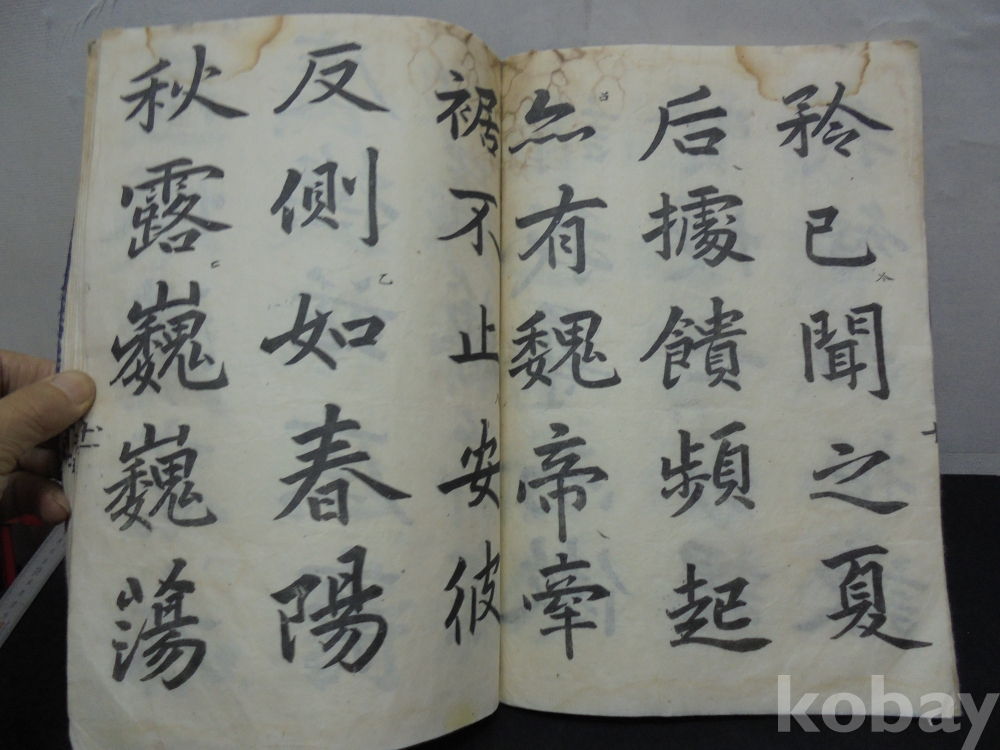 矜已聞之夏
后據饋頻起
亦有魏帝牽
裾不止安彼
反側如春陽
乙
秋露巍巍蕩
kobay